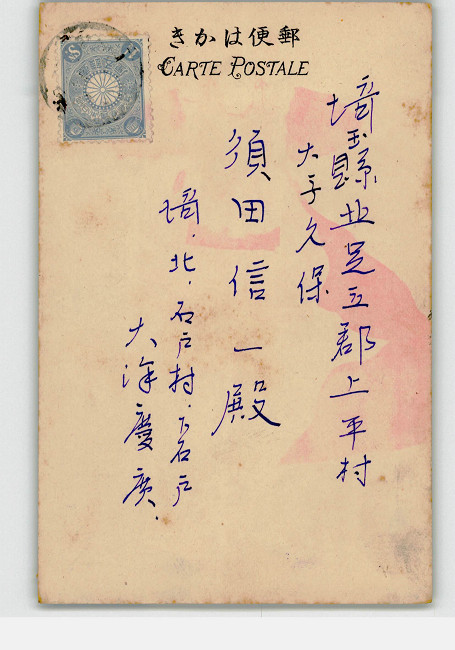 きかは便郵
CARTE POSTALE
埼玉縣北足立郡上平村
大字久保
須田信一殿
埼.北.石戸村.下石戸
大澤慶廣.